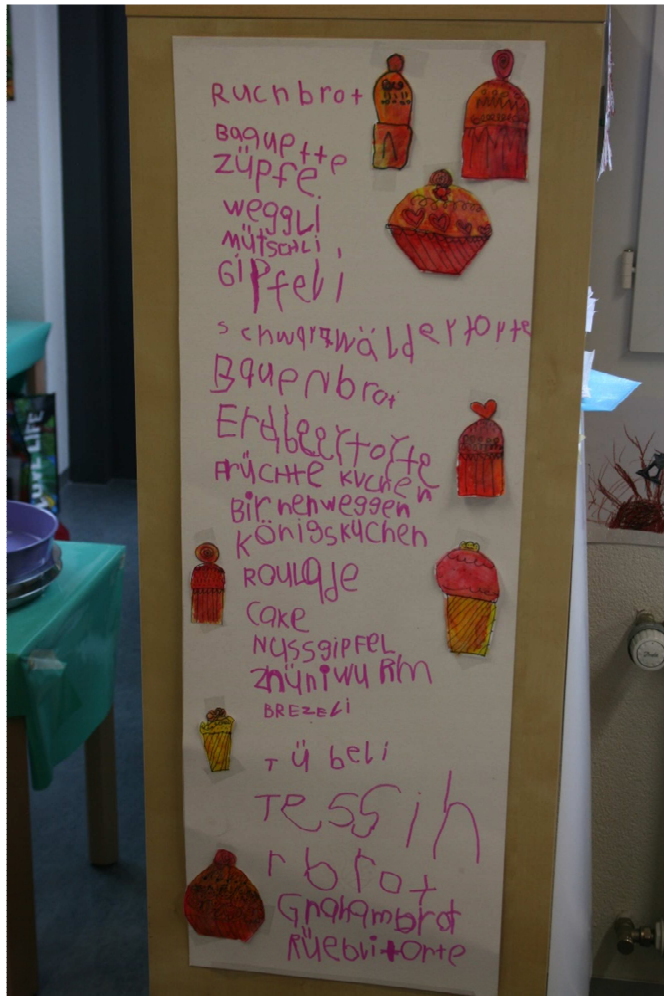 Ruchbrot
Baguette
Züpfe
Weggli
MütSCHLi
GiPfeli
schwarzwäldertorte
BauerNbrot
Erdbeertorte
FRÜCHTE KUCHEN
BirNenweggen
Königskuchen
ROULADE
CAKE
NUSSGIPFEL
Znüniwurm
BREZELi
Tübeli
Tessin
rbrot
Grahambrot
RüebLitorte